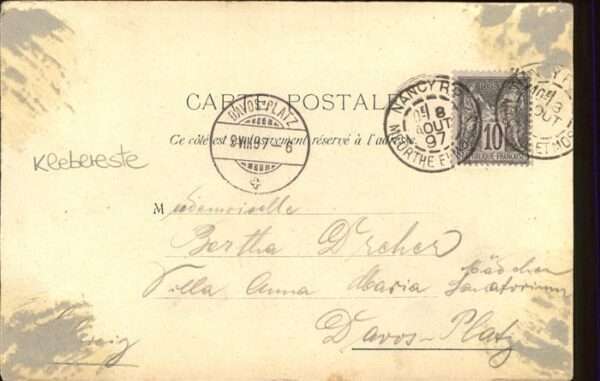 CARTE POSTALE
Ce côté est exclusivement réservé à l'adresse
NANCY R.P.
8
AOUT
97
MEURTHE ET MOSELLE
10
REPUBLIQUE FRANÇAISE
8
AOUT
ET MOS
DAVOS-PLATZ
9.VIII.97-6
Klebereste
Mademoiselle
Bertha Dreher
Villa Anna Maria Mädchen
Sanatorium
Davos-Platz